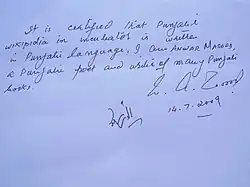 It is certified that Punjabi
wikipidia in incubator is written
in Punjabi language. I am Anwar Masood,
a Punjabi poet and writer of many Punjabi
books.
14.7.2009